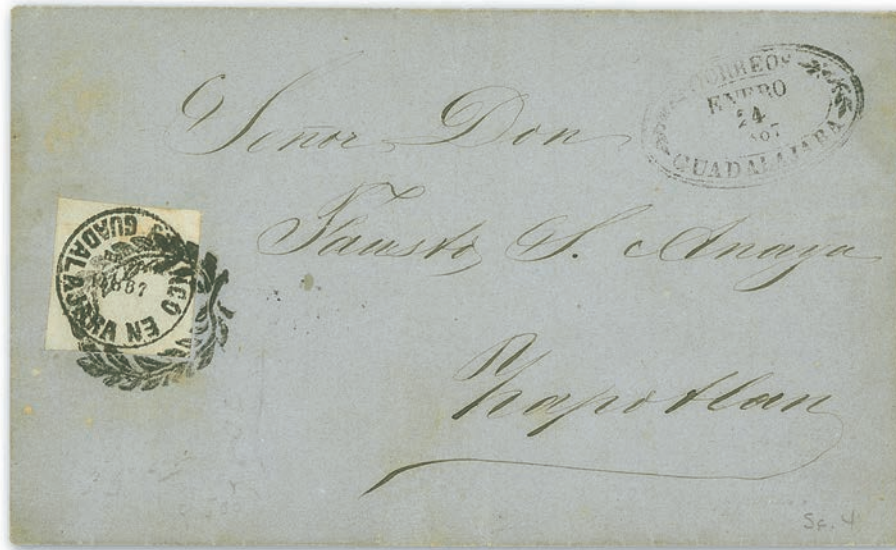 CORREOS
ENERO
24
GUADALAJARA
Señor Don
Fausto S. Anaya
Zapotlan
FRANCO EN GUADALAJARA
1867
Sc. 4